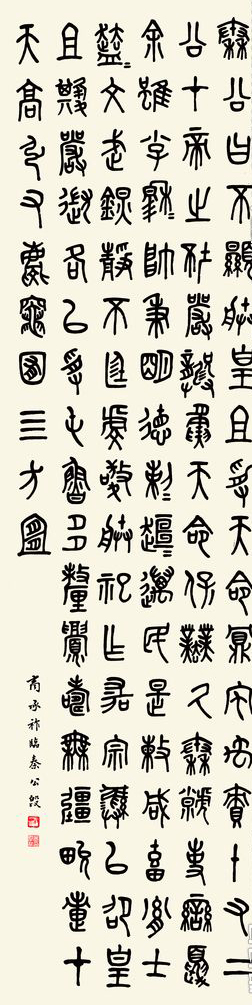 秦公曰不顯朕皇且受天命鼏宅禹賣十又二
公才帝之坏嚴龏夤天命保業氒秦虩事蠻夏
余雖小子穆=帥秉明德剌=趄=萬民是敕咸畜胤士
盍=文武鎮靜不廷虔敬朕祀乍宗彝以卲皇
且其嚴各以受屯魯多釐眉壽無疆畯疐才
天高弘又慶竈囿四方宜
商承祚臨秦公𣪘